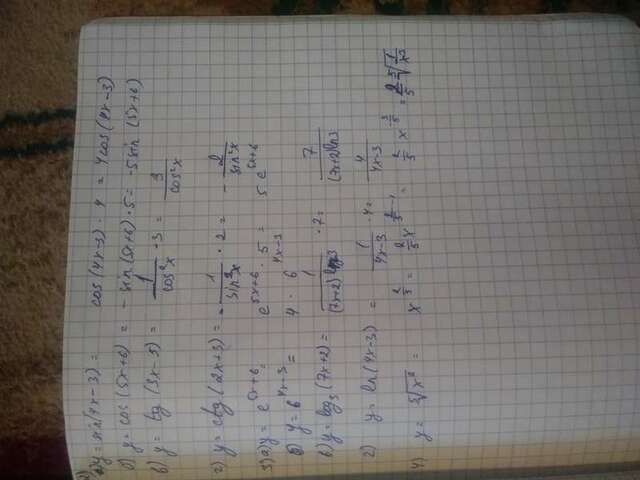 2)
а) y = sin(4x-3) = cos(4x-3) · 4 = 4cos(4x-3)
б) y = cos(5x+6) = -sin(5x+6) · 5 = -5sin(5x+6)
в) y = tg(3x-5) = 1/cos²x · 3 = 3/cos²x
г) y = ctg(2x+3) = -1/sin²x · 2 = -2/sin²x
3) а) y = e^(5x+6) = e^(5x+6) · 5 = 5e^(5x+6)
б) y = 6^(4x-3) = 4 · 6^(4x-3)
в) y = log₃(7x+2) = 1/((7x+2)ln3) · 7 = 7/((7x+2)ln3)
г) y = ln(4x-3) = 1/(4x-3) · 4 = 4/(4x-3)
4) y = ⁵√x² = x^(2/5) = 2/5 x^(2/5-1) = 2/5 x^(3/5) = 2/5 ⁵√(1/x³)